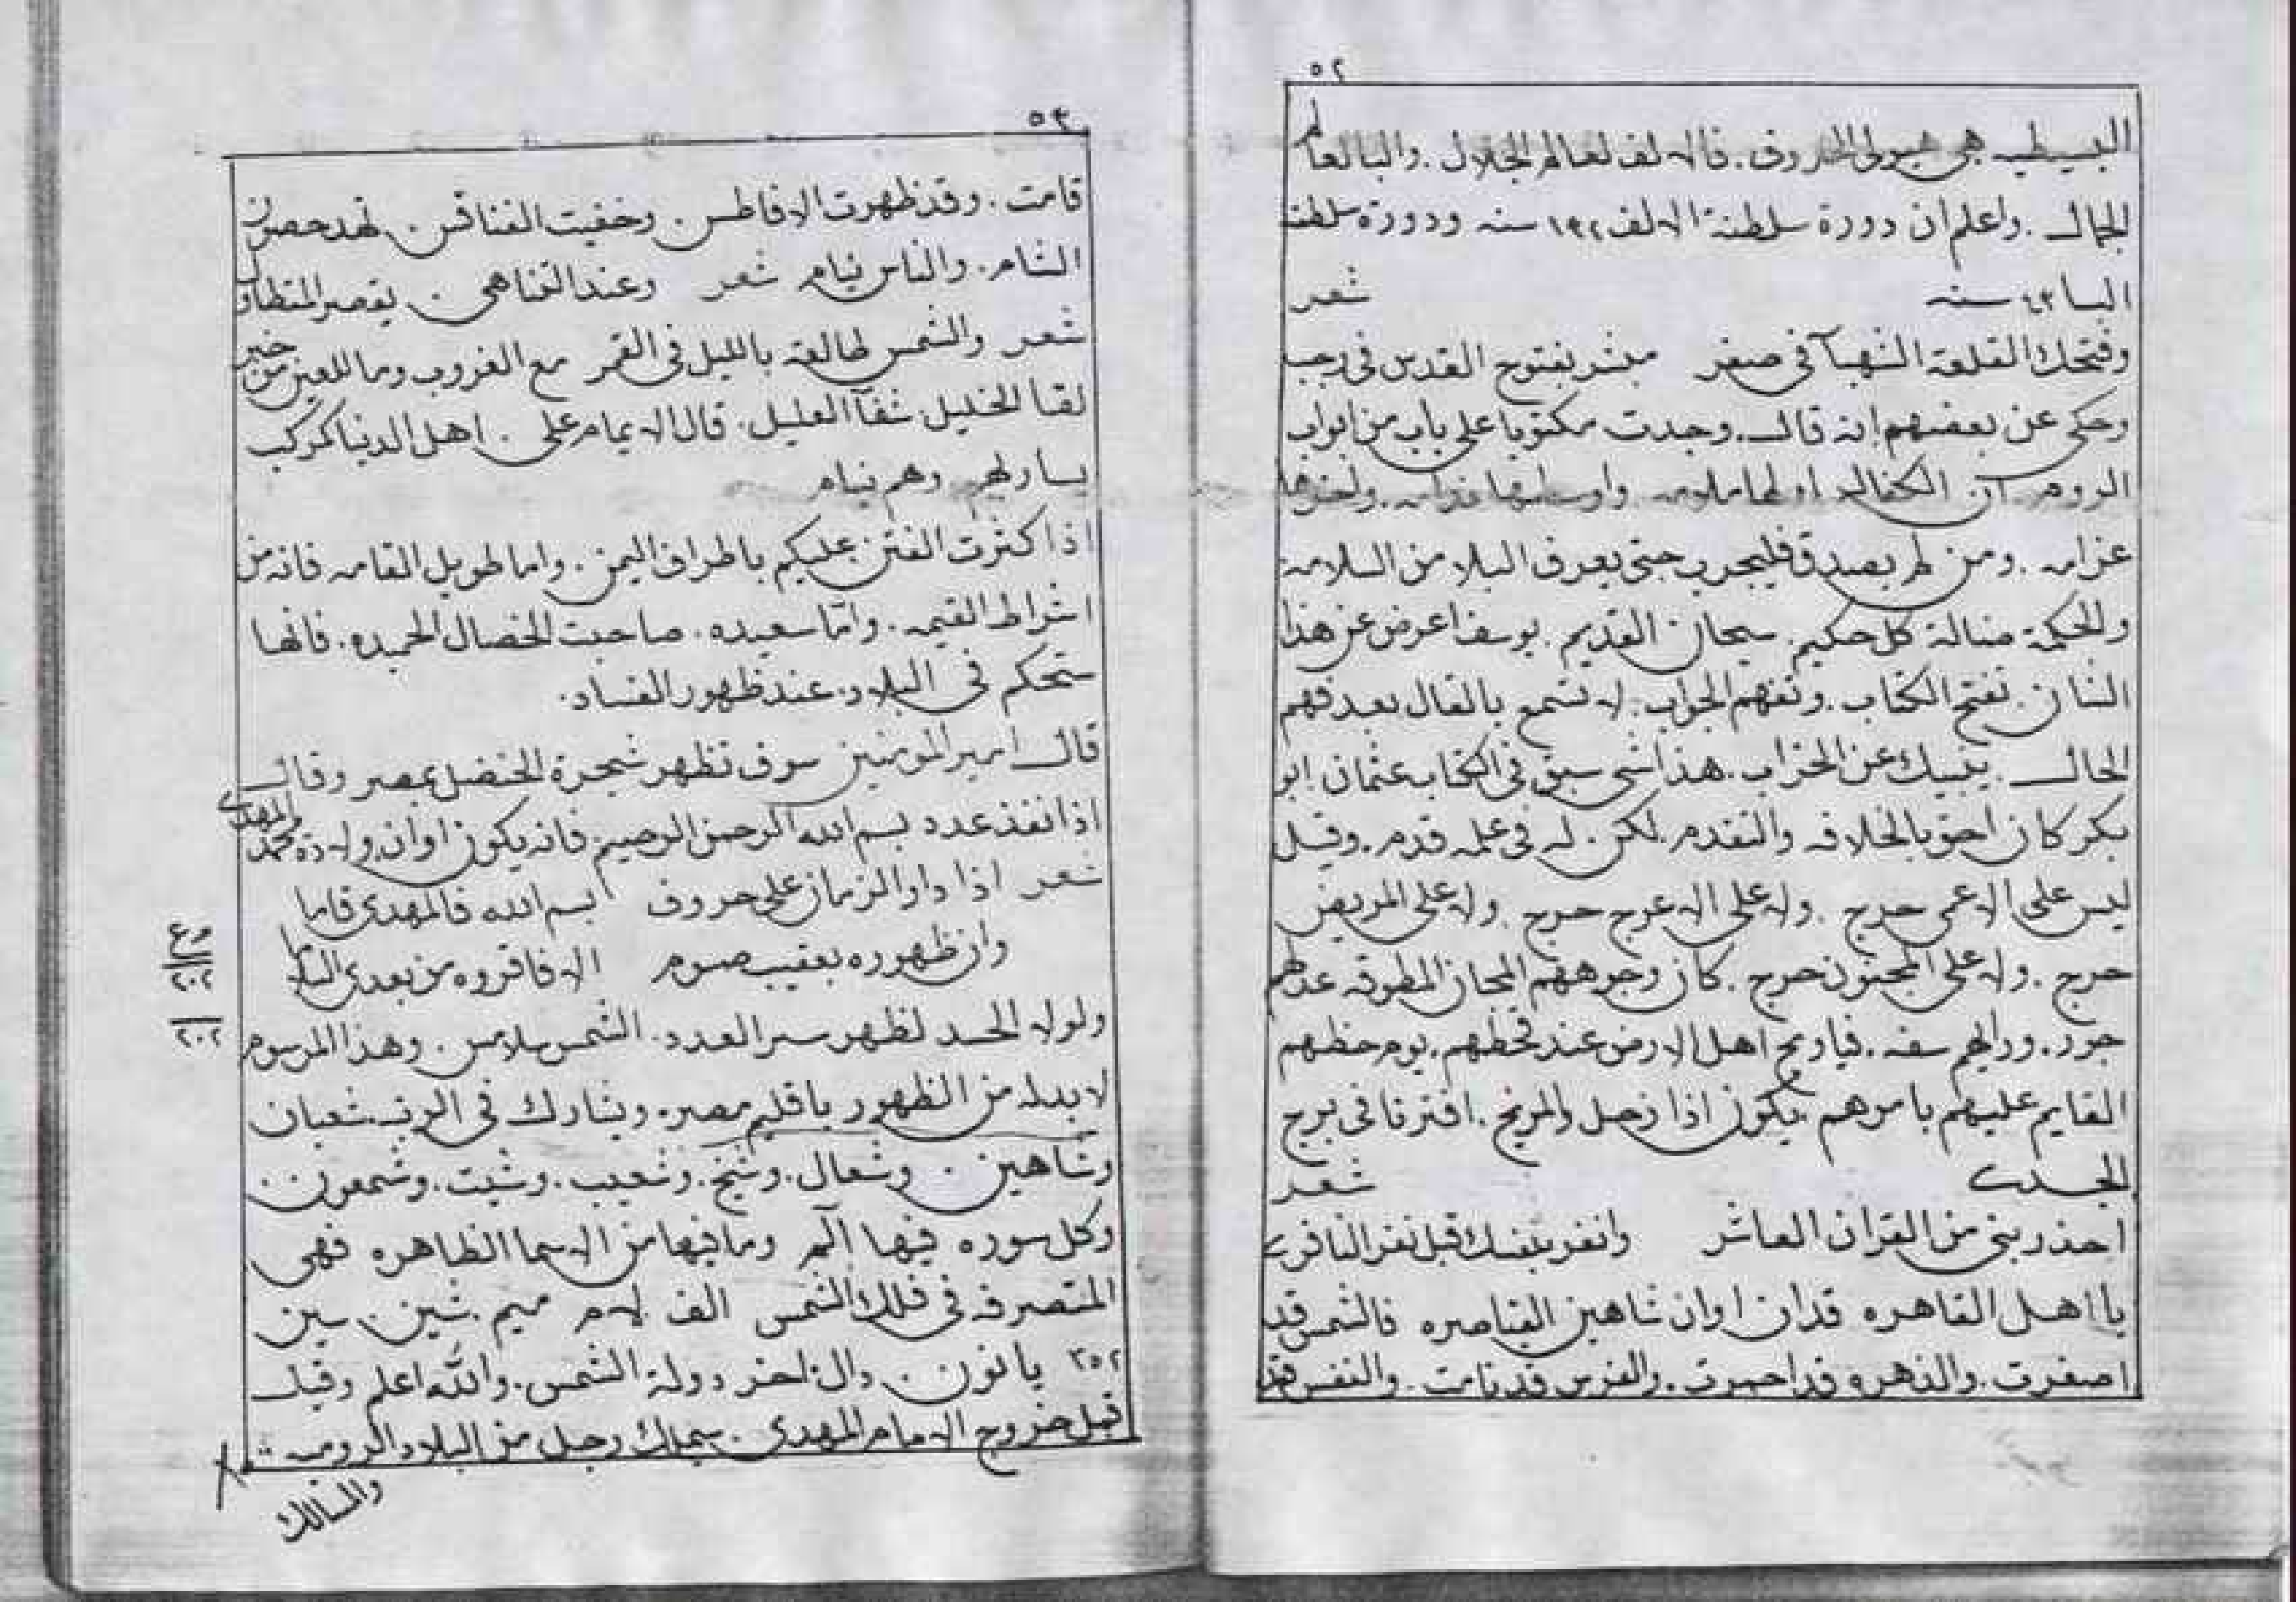 ٥٢
البسيطه هى هيولى الحروف. فالالف لعالم الجلال. والبا لعالم
الجمال. واعلم ان دورة سلطنة الالف ١٩٢ سنه ودورة سلطنة
البا ٤٢ سنه شعر
وفتحك القلعة الشهبآ فى صفر مبشر بفتوح القدس فى رجب
وحكى عن بعضهم انه قال. وجدت مكتوبا على باب من ابواب
الروم ان الكفاله اولها ملامه واوسطها ندامه. واخرها
غرامه. ومن لم يصدق فليجرب حتى يعرف البلا من السلامه
والحكمة ضالة كل حكيم. سبحان القديم. يوسف اعرض عن هذا
الشان. تفتح الكتاب. وتفهم الجواب. لا تسمع بالقال بعد فهم
الحال. ينبيك عن الخراب. هذا شى سبق فى الكتاب عثمان ابو
بكر كان احق بالخلافه والتقدم. لكن. له فى علمه قدم. وقيل
ليس على الاعمى حرج. ولا على الاعرج حرج ولا على المريض
حرج. ولا على المجنون حرج. كان وجوههم المجان المطرقه عدلهم
جور. ورايهم سفه. فيا ويح اهل الارض عند قحطهم. يوم حظهم
القايم عليهم بامرهم. يكون اذا زحل والمريخ. اقترنا فى برج
الجدى شعر
احذر بنى من القران العاشر وانفر بنفسك قبل نفر النافرى
يا اهل القاهره قد ان اوان شاهين القياصره فالشمس قد
اصفرت. والزهره قد احمرت. والفرس قد نامت. والنفس قد
٥٣
قامت. وقد ظهرت الافاطس. وخفيت الفنافس. لهد حصون
الشام. والناس نيام شعر وعند التناهى. يقصر المتطاول
شعر والشمس طالعة بالليل فى القمر مع الغروب وما للعين من خبر
لقا الخليل شفآ العليل. قال الايمام على. اهل الدنيا كركب
يسار بهم وهم نيام
اذا كثرت الفتن عليكم باطراف اليمن. واما طويل القامه فانه من
اشراط القيمه. وامّا سعيده. صاحبت الخصال الحميده. فانها
ستحكم فى البلاد. عند ظهور الفساد.
قال امير المومنين سوف تظهر شجرة الحنضل بمصر وقال
اذا نفذ عدد بسم الله الرحمن الرحيم فانه يكون اوان ولادة محمد المهدى
شعر اذا دار الزمان على حروف بسم الله فالمهدى قاما
وان ظهوره بعقيب صوم الا فاقروه من بعدى السلاما
ولولا الحسد لظهر سر العدد. الشمس سلامس. وهذا المرسوم
لا بد له من الظهور باقليم مصر. ويشارك فى الرتب شعبان
وشاهين. وشعال. وشيخ. وشعيب. وشيت. وشمعون.
وكل سوره فيها آلم وما فيها من الاسما الظاهره فهى
المتصرفه فى فلك الشمس الف لام ميم شين. سين
٣٥٢ يا نون. دال اخر دولة الشمس. والله اعلم وقيل
قبل خروج الامام المهدى. يملك رجل من البلاد الروميه
والمسالك
٢٠٢
٢٠٢